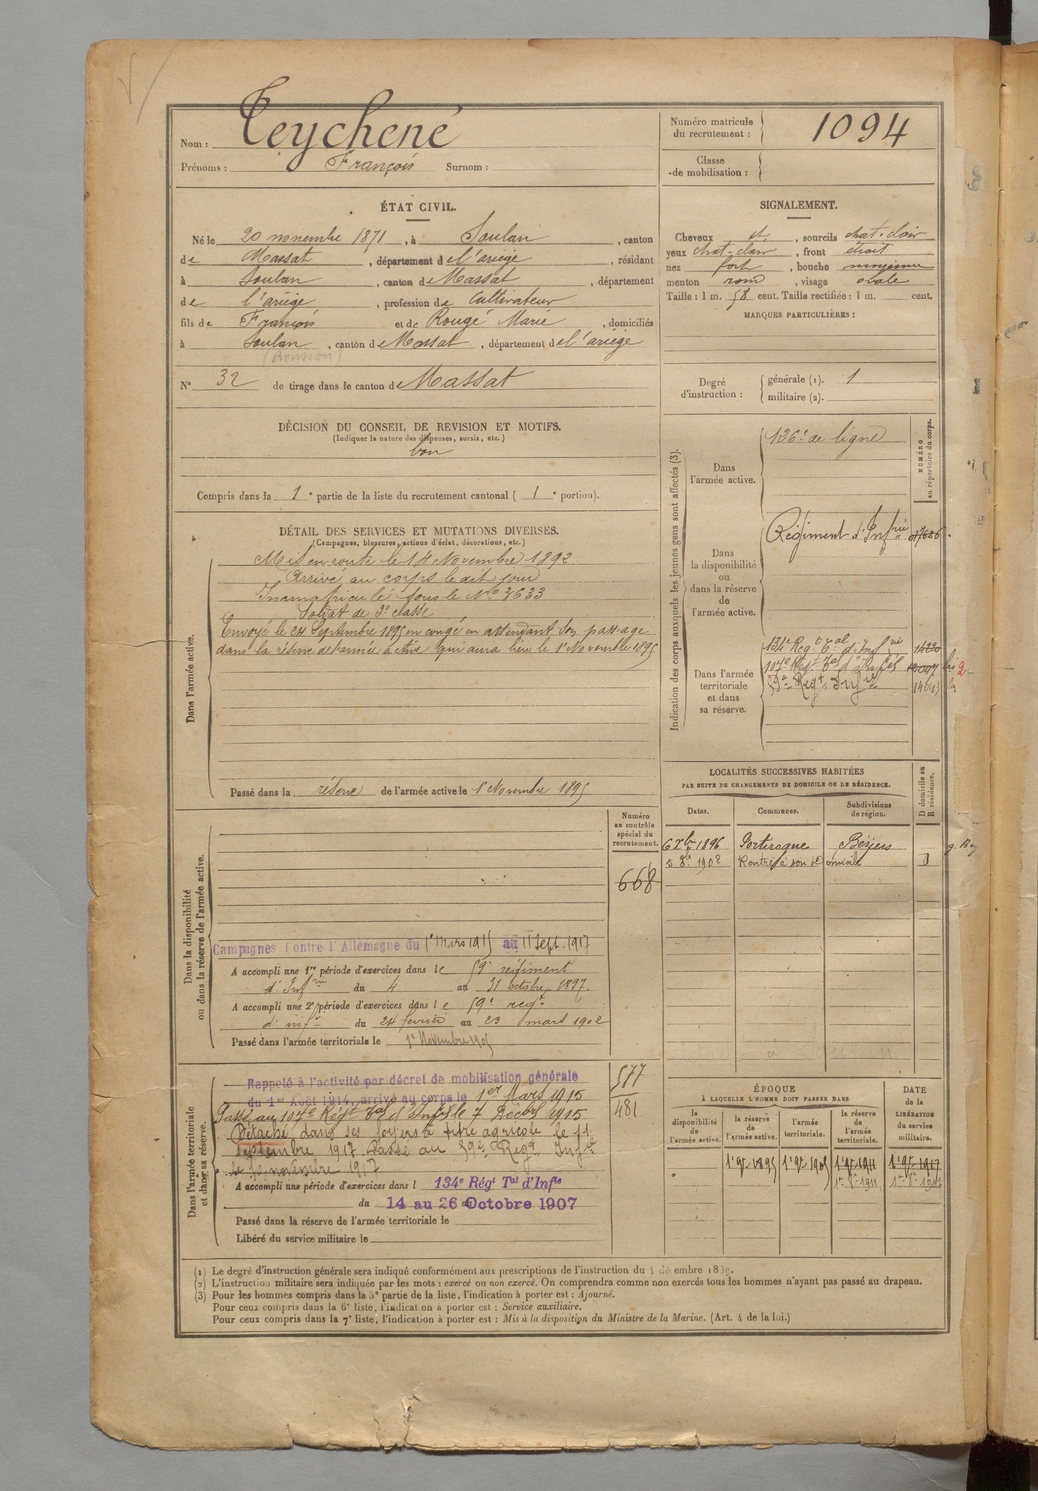 Nom : Teychené
Prénoms : François Surnom :
Numéro matricule du recrutement : 1094
Classe de mobilisation :
ÉTAT CIVIL.
Né le 20 novembre 1871, à Soulan, canton
de Massat, département de l'ariège, résidant
à Soulan, canton de Massat, département
de l'ariège, profession de Cultivateur
fils de François et de Rougé Marie, domiciliés
à Soulan, canton de Massat, département de l'ariège
N° 32 de tirage dans le canton de Massat
SIGNALEMENT.
Cheveux et, sourcils chat. clair
yeux chat. clair, front étroit
nez fort, bouche moyenne
menton rond, visage ovale
Taille : 1 m. 58 cent. Taille rectifiée : 1 m. cent.
MARQUES PARTICULIÈRES :
Degré d'instruction : générale (1). 1
militaire (2).
DÉCISION DU CONSEIL DE REVISION ET MOTIFS.
(Indiquer la nature des dispenses, sursis, etc.)
bon
Compris dans la 1e partie de la liste du recrutement cantonal ( 1e portion).
DÉTAIL DES SERVICES ET MUTATIONS DIVERSES.
(Campagnes, blessures, actions d'éclat, décorations, etc.)
Dans l'armée active.
Mis en route le 14 Novembre 1892
Arrivé au corps le dit jour
Immatriculé sous le N° 3633
Soldat de 2e classe
Envoyé le 24 Septembre 1895 en congé en attendant son passage
dans la réserve de l'armée active qui aura lieu le 1er Novembre 1895
Passé dans la réserve de l'armée active le 1er Novembre 1895
Indication des corps auxquels les jeunes gens sont affectés (3).
NUMÉRO au répertoire du corps.
Dans l'armée active.
136e de ligne
Dans la disponibilité ou dans la réserve de l'armée active.
Régiment d'Infrie
Dans l'armée territoriale et dans sa réserve.
134e Régt Tal d'Infrie
104e Régt Tal d'Infie
59e Régt Infie
LOCALITÉS SUCCESSIVES HABITÉES
PAR SUITE DE CHANGEMENTS DE DOMICILE OU DE RÉSIDENCE.
Dates. Communes. Subdivisions de région. D domicile ou R résidence.
6 Xbre 1896 Portiragne Béziers
1908 Rentré à son domicile D
Dans la disponibilité ou dans la réserve de l'armée active.
Numéro au contrôle spécial du recrutement.
668
Campagnes contre l'Allemagne du 1er mars 1915 au 11 Sept. 1917
A accompli une 1re période d'exercices dans le 59e régiment
d'Infrie du 4 au 31 octobre 1897.
A accompli une 2e période d'exercices dans le 59e régt
d'infie du 24 février au 23 mars 1902
Passé dans l'armée territoriale le 1er Novembre 1905
Dans l'armée territoriale et dans sa réserve.
577
481
Rappelé à l'activité par décret de mobilisation générale
du 1er Août 1914, arrivé au corps le 1er Mars 1915
Passé au 104e Régt Tal d'Infie le 7 Décbre 1915
Détaché dans ses foyers à titre agricole le 11
Septembre 1917 Passé au 59e Régt Infie
novembre 1917
A accompli une période d'exercices dans l 134e Régt Tal d'Infie
du 14 au 26 Octobre 1907
Passé dans la réserve de l'armée territoriale le
Libéré du service militaire le
ÉPOQUE
À LAQUELLE L'HOMME DOIT PASSER DANS
la disponibilité de l'armée active. la réserve de l'armée active. l'armée territoriale. la réserve de l'armée territoriale.
DATE de la LIBÉRATION du service militaire.
1er 9bre 1895 1er 9bre 1905 1er 9bre 1911 1er 9bre 1917
(1) Le degré d'instruction générale sera indiqué conformément aux prescriptions de l'instruction du 4 décembre 1889.
(2) L'instruction militaire sera indiquée par les mots : exercé ou non exercé. On comprendra comme non exercés tous les hommes n'ayant pas passé au drapeau.
(3) Pour les hommes compris dans la 5e partie de la liste, l'indication à porter est : Ajourné.
Pour ceux compris dans la 6e liste, l'indication à porter est : Service auxiliaire.
Pour ceux compris dans la 7e liste, l'indication à porter est : Mis à la disposition du Ministre de la Marine. (Art. 4 de la loi.)